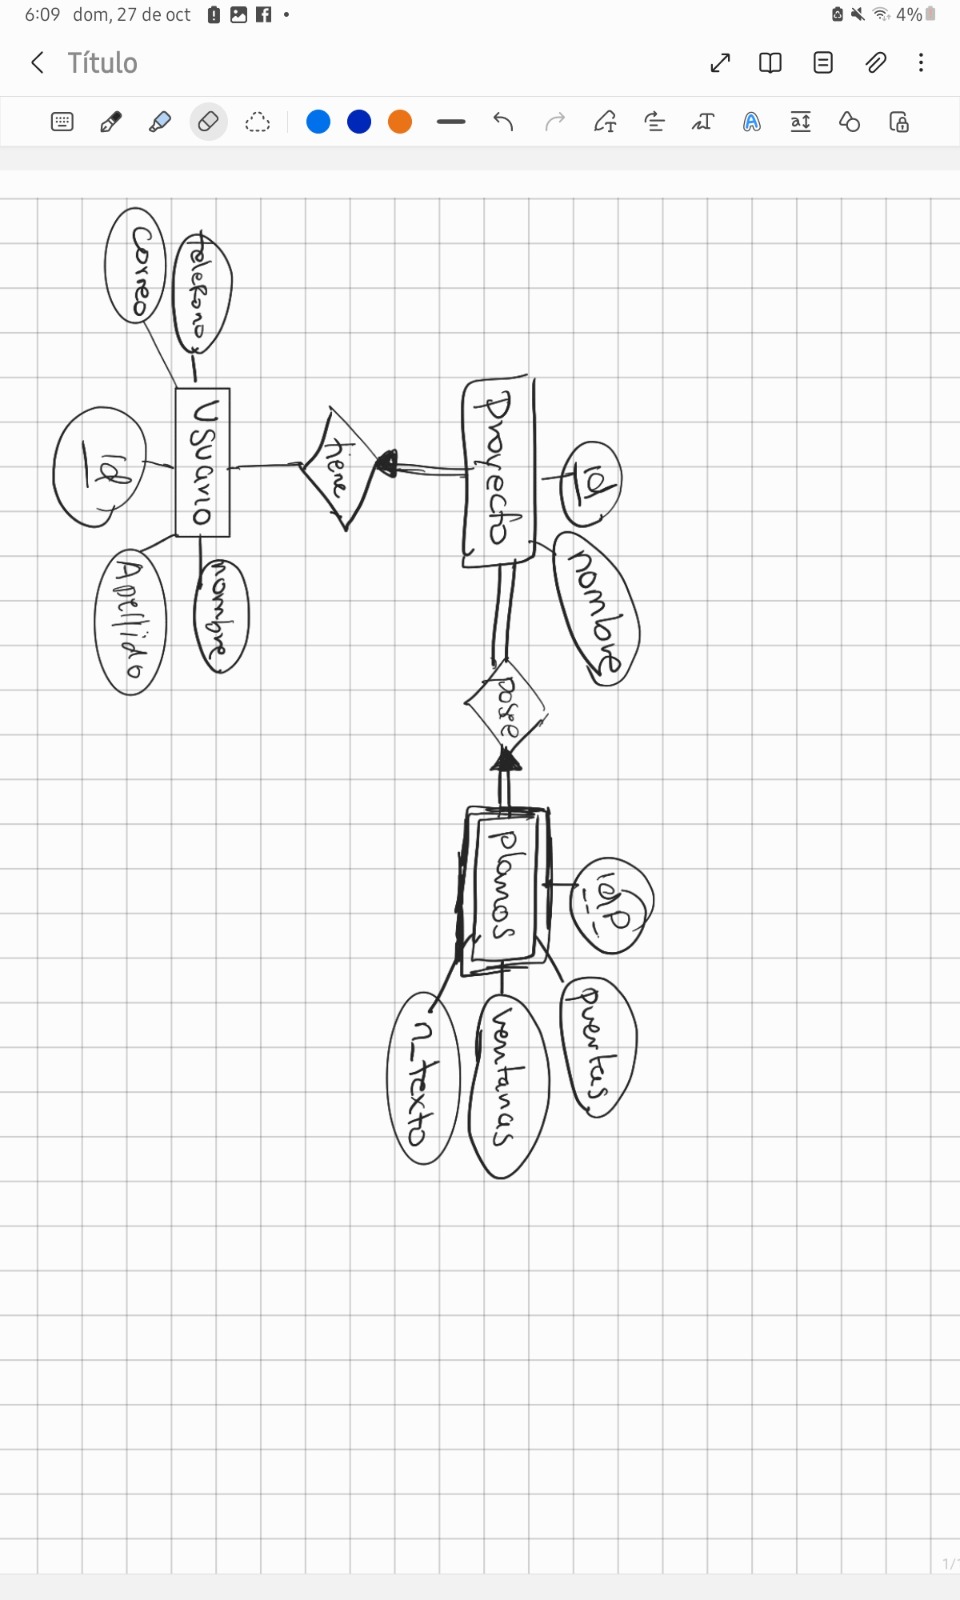 6:09 dom, 27 de oct
4%
Título
1/1
id
nombre
Proyecto
posee
idP
puertas
planos
ventanas
n_texto
tiene
telefono
Usuario
nombre
Correo
id
Apellido